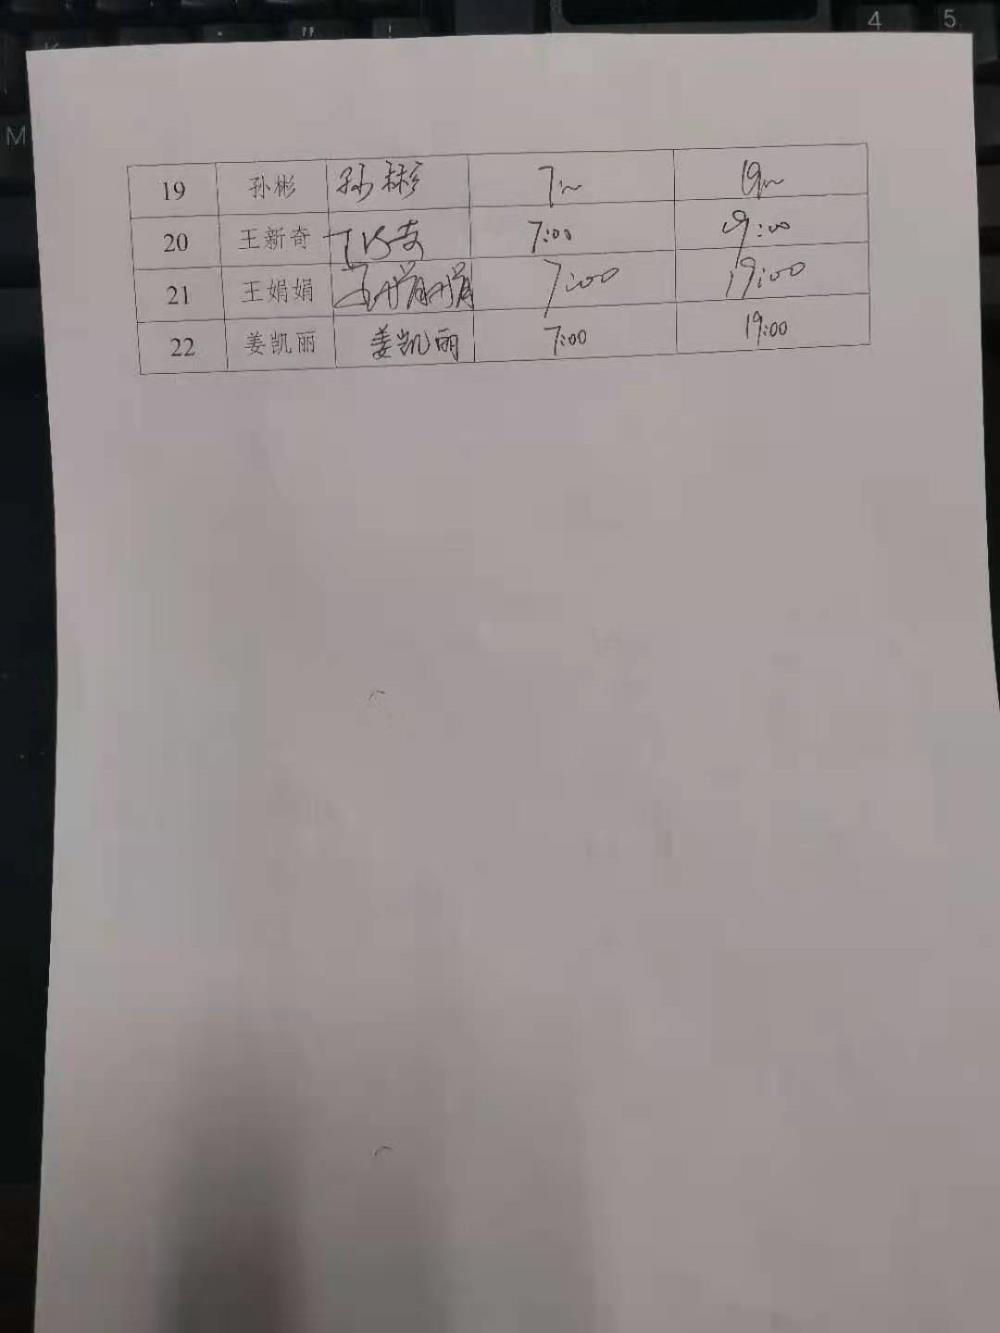 19 孙彬 孙彬 7:00 19:00
20 王新奇 7:00 19:00
21 王娟娟 王娟娟 7:00 19:00
22 姜凯丽 姜凯丽 7:00 19:00
4 5
M